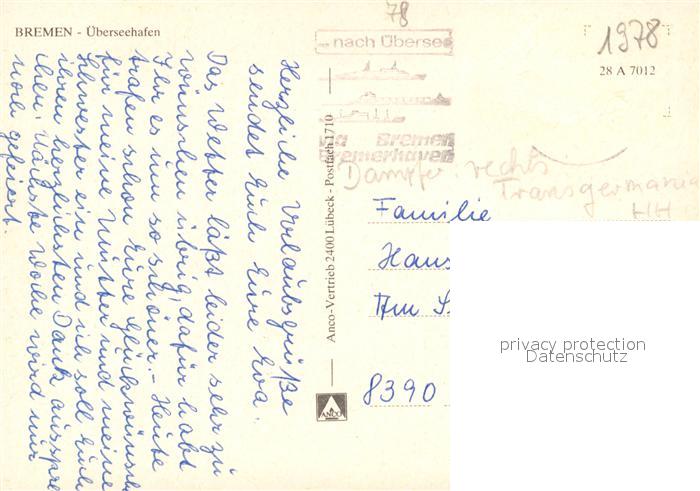 BREMEN - Überseehafen
78
nach Übersee
via Bremen
Bremerhaven
1978
28 A 7012
Dampfer rechts
Transgermania
HH
Herzliche Urlaubsgrüße
sendet Euch Eure Eva.
Das Wetter läßt leider sehr zu
wünschen übrig, dafür habt
Ihr es um so schöner. - Heute
trafen schon Eure Glückwünsche
für meine Mutter und meine
Schwester ein und ich soll Euch
ihren herzlichsten Dank ausspre
chen. Nächste Woche wird nur
noch gefeiert.
Anco-Vertrieb 2400 Lübeck - Postfach 1710
ANCO
Familie
Hans
Am S
8390
privacy protection
Datenschutz